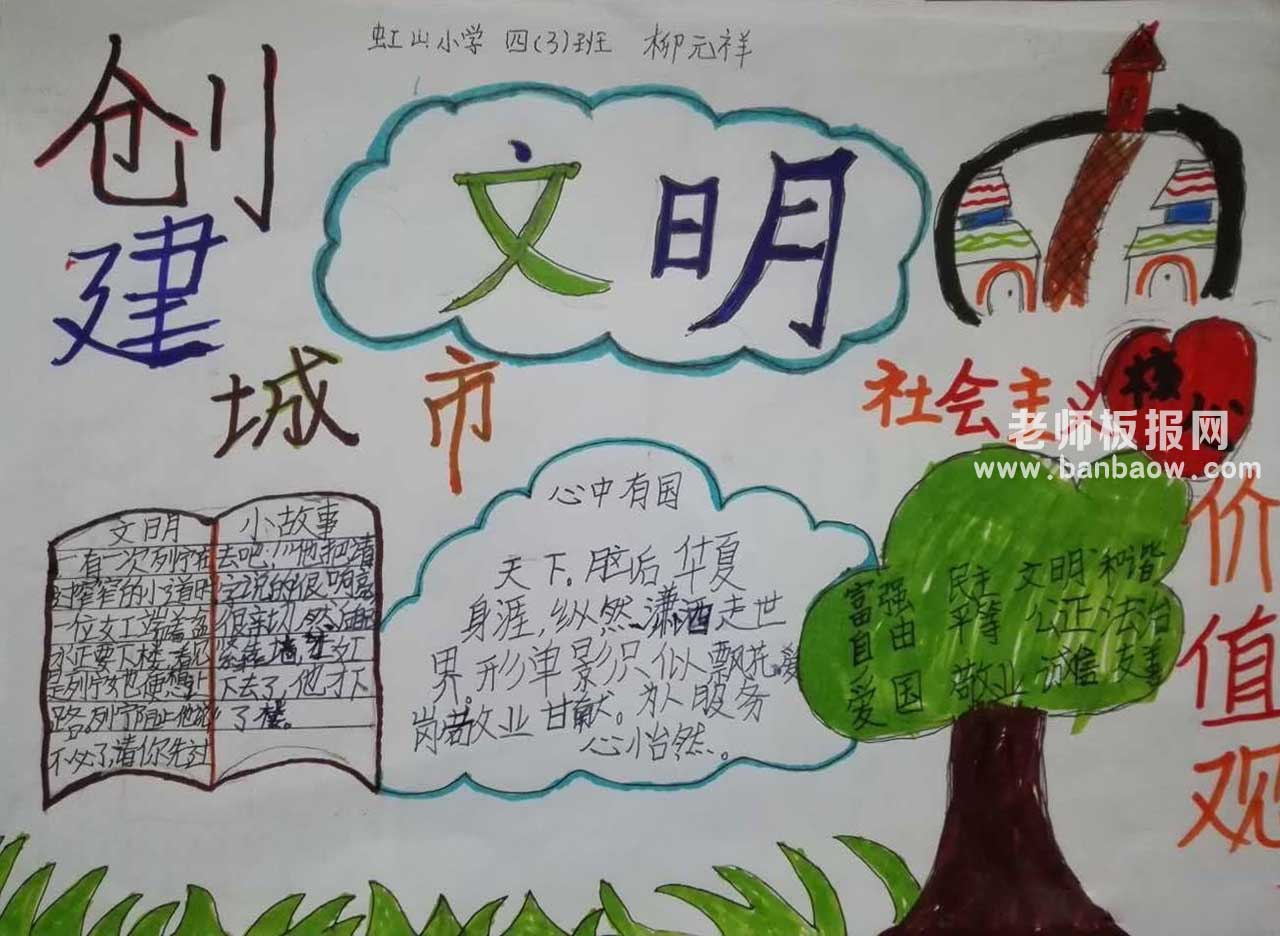 虹山小学 四(3)班 柳元祥
创建
文明
城市
社会主义
核心
价值观
老师板报网
www.banbaow.com
文明小故事
有一次列宁在
对窄窄的小道时
一位女工端着盆
水正要下楼,看见
是列宁她便想让
路。列宁阻止她说
不必了,请你先过
去吧!"他把请
字说的很响亮
很亲切,然后
紧靠墙,
下去了,他才下
了楼。
心中有国
天下。脑后华夏
身涯,纵然潇洒走世
界。形单影只似飘花。爱
岗敬业甘献。为人服务
心怡然。
富强 民主 文明 和谐
自由 平等 公正 法治
爱国 敬业 诚信 友善